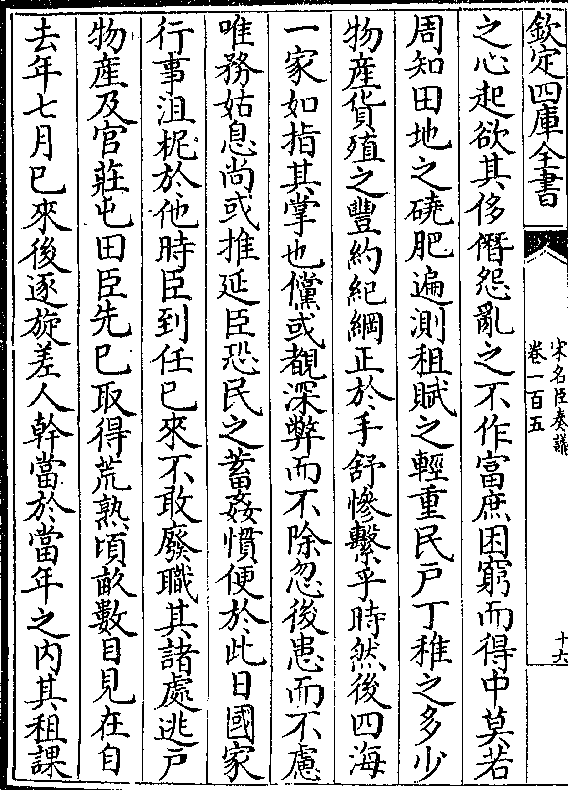 欽定四庫全書
宋名臣奏議
卷一百五
十六
之心起欲其侈僭怨亂之不作富庶困窮而得中莫若
周知田地之磽肥遍測租賦之輕重民戶丁稚之多少
物產貨殖之豐約紀綱正於手舒慘繫乎時然後四海
一家如指其掌也儻或覩深弊而不除忽後患而不慮
唯務姑息尚或推延臣恐民之蓄姦慣便於此日國家
行事沮柅於他時臣到任已來不敢廢職其諸處逃戶
物產及官莊屯田臣先已取得荒熟頃畝數目見在自
去年七月已來後逐旋差人幹當於當年之內其租課